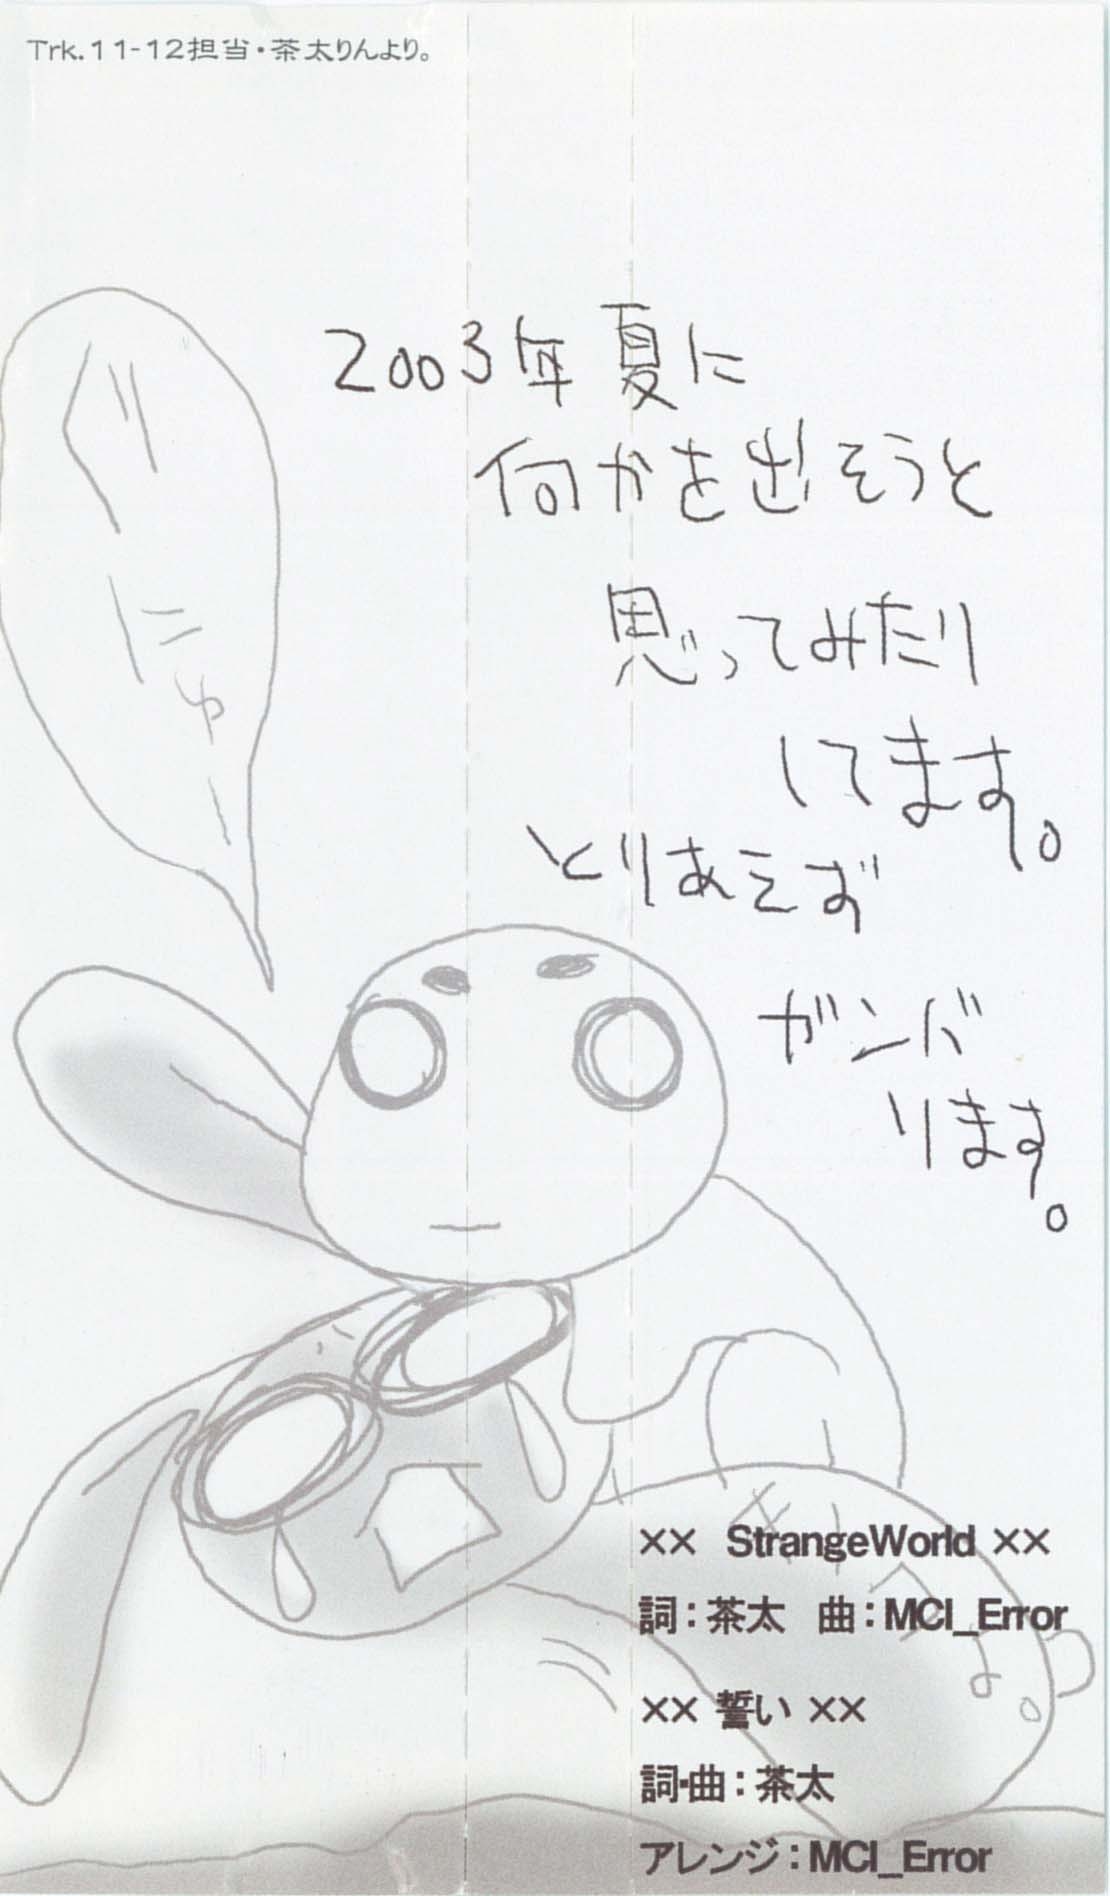 Trk.11-12担当・茶太りんより。
2003年夏に
何かを出そうと
思ってみたり
してます。
とりあえず
ガンバ
ります。
×× StrangeWorld ××
詞：茶太 曲：MCI_Error
×× 誓い ××
詞・曲：茶太
アレンジ：MCI_Error